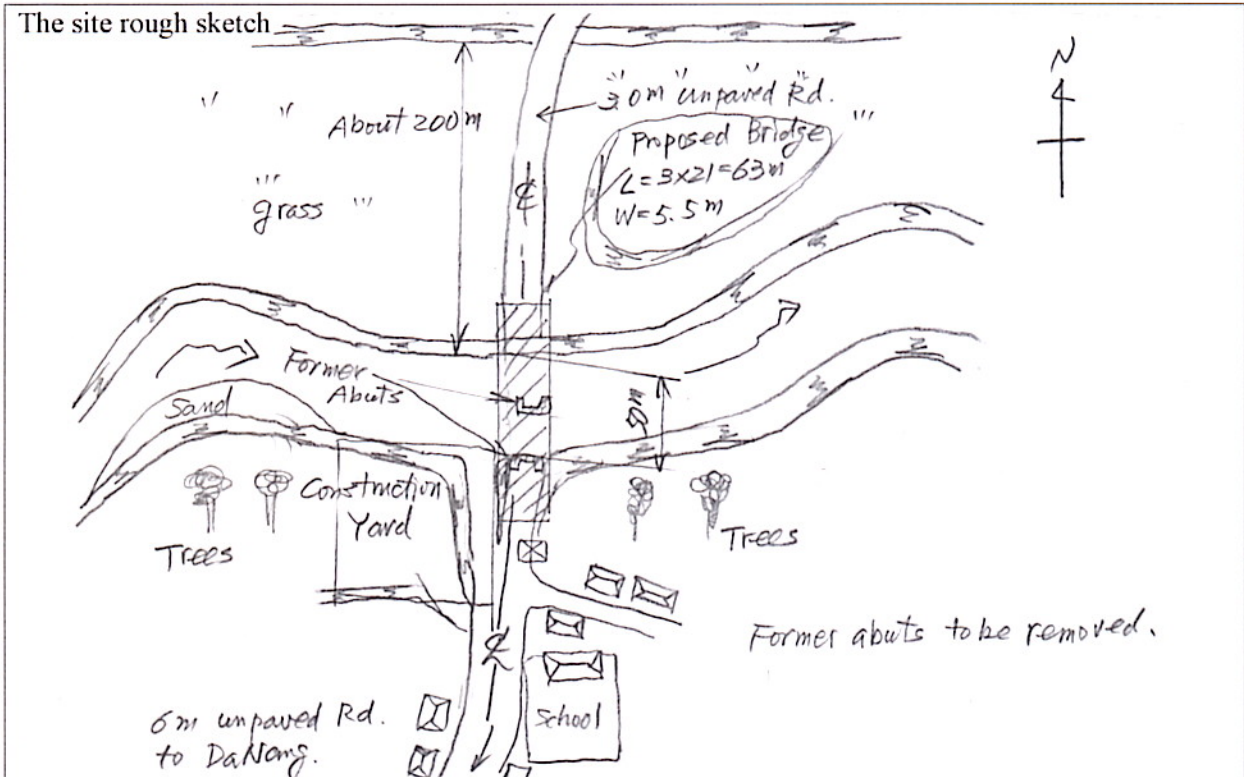 The site rough sketch
N
3.0m unpaved Rd.
About 200m
Proposed Bridge
L=3x21=63m
W=5.5m
grass
℄
Former
Abuts
Sand
Construction
Yard
Trees
Trees
Former abuts to be removed.
℄
6m unpaved Rd.
to DaNang.
School